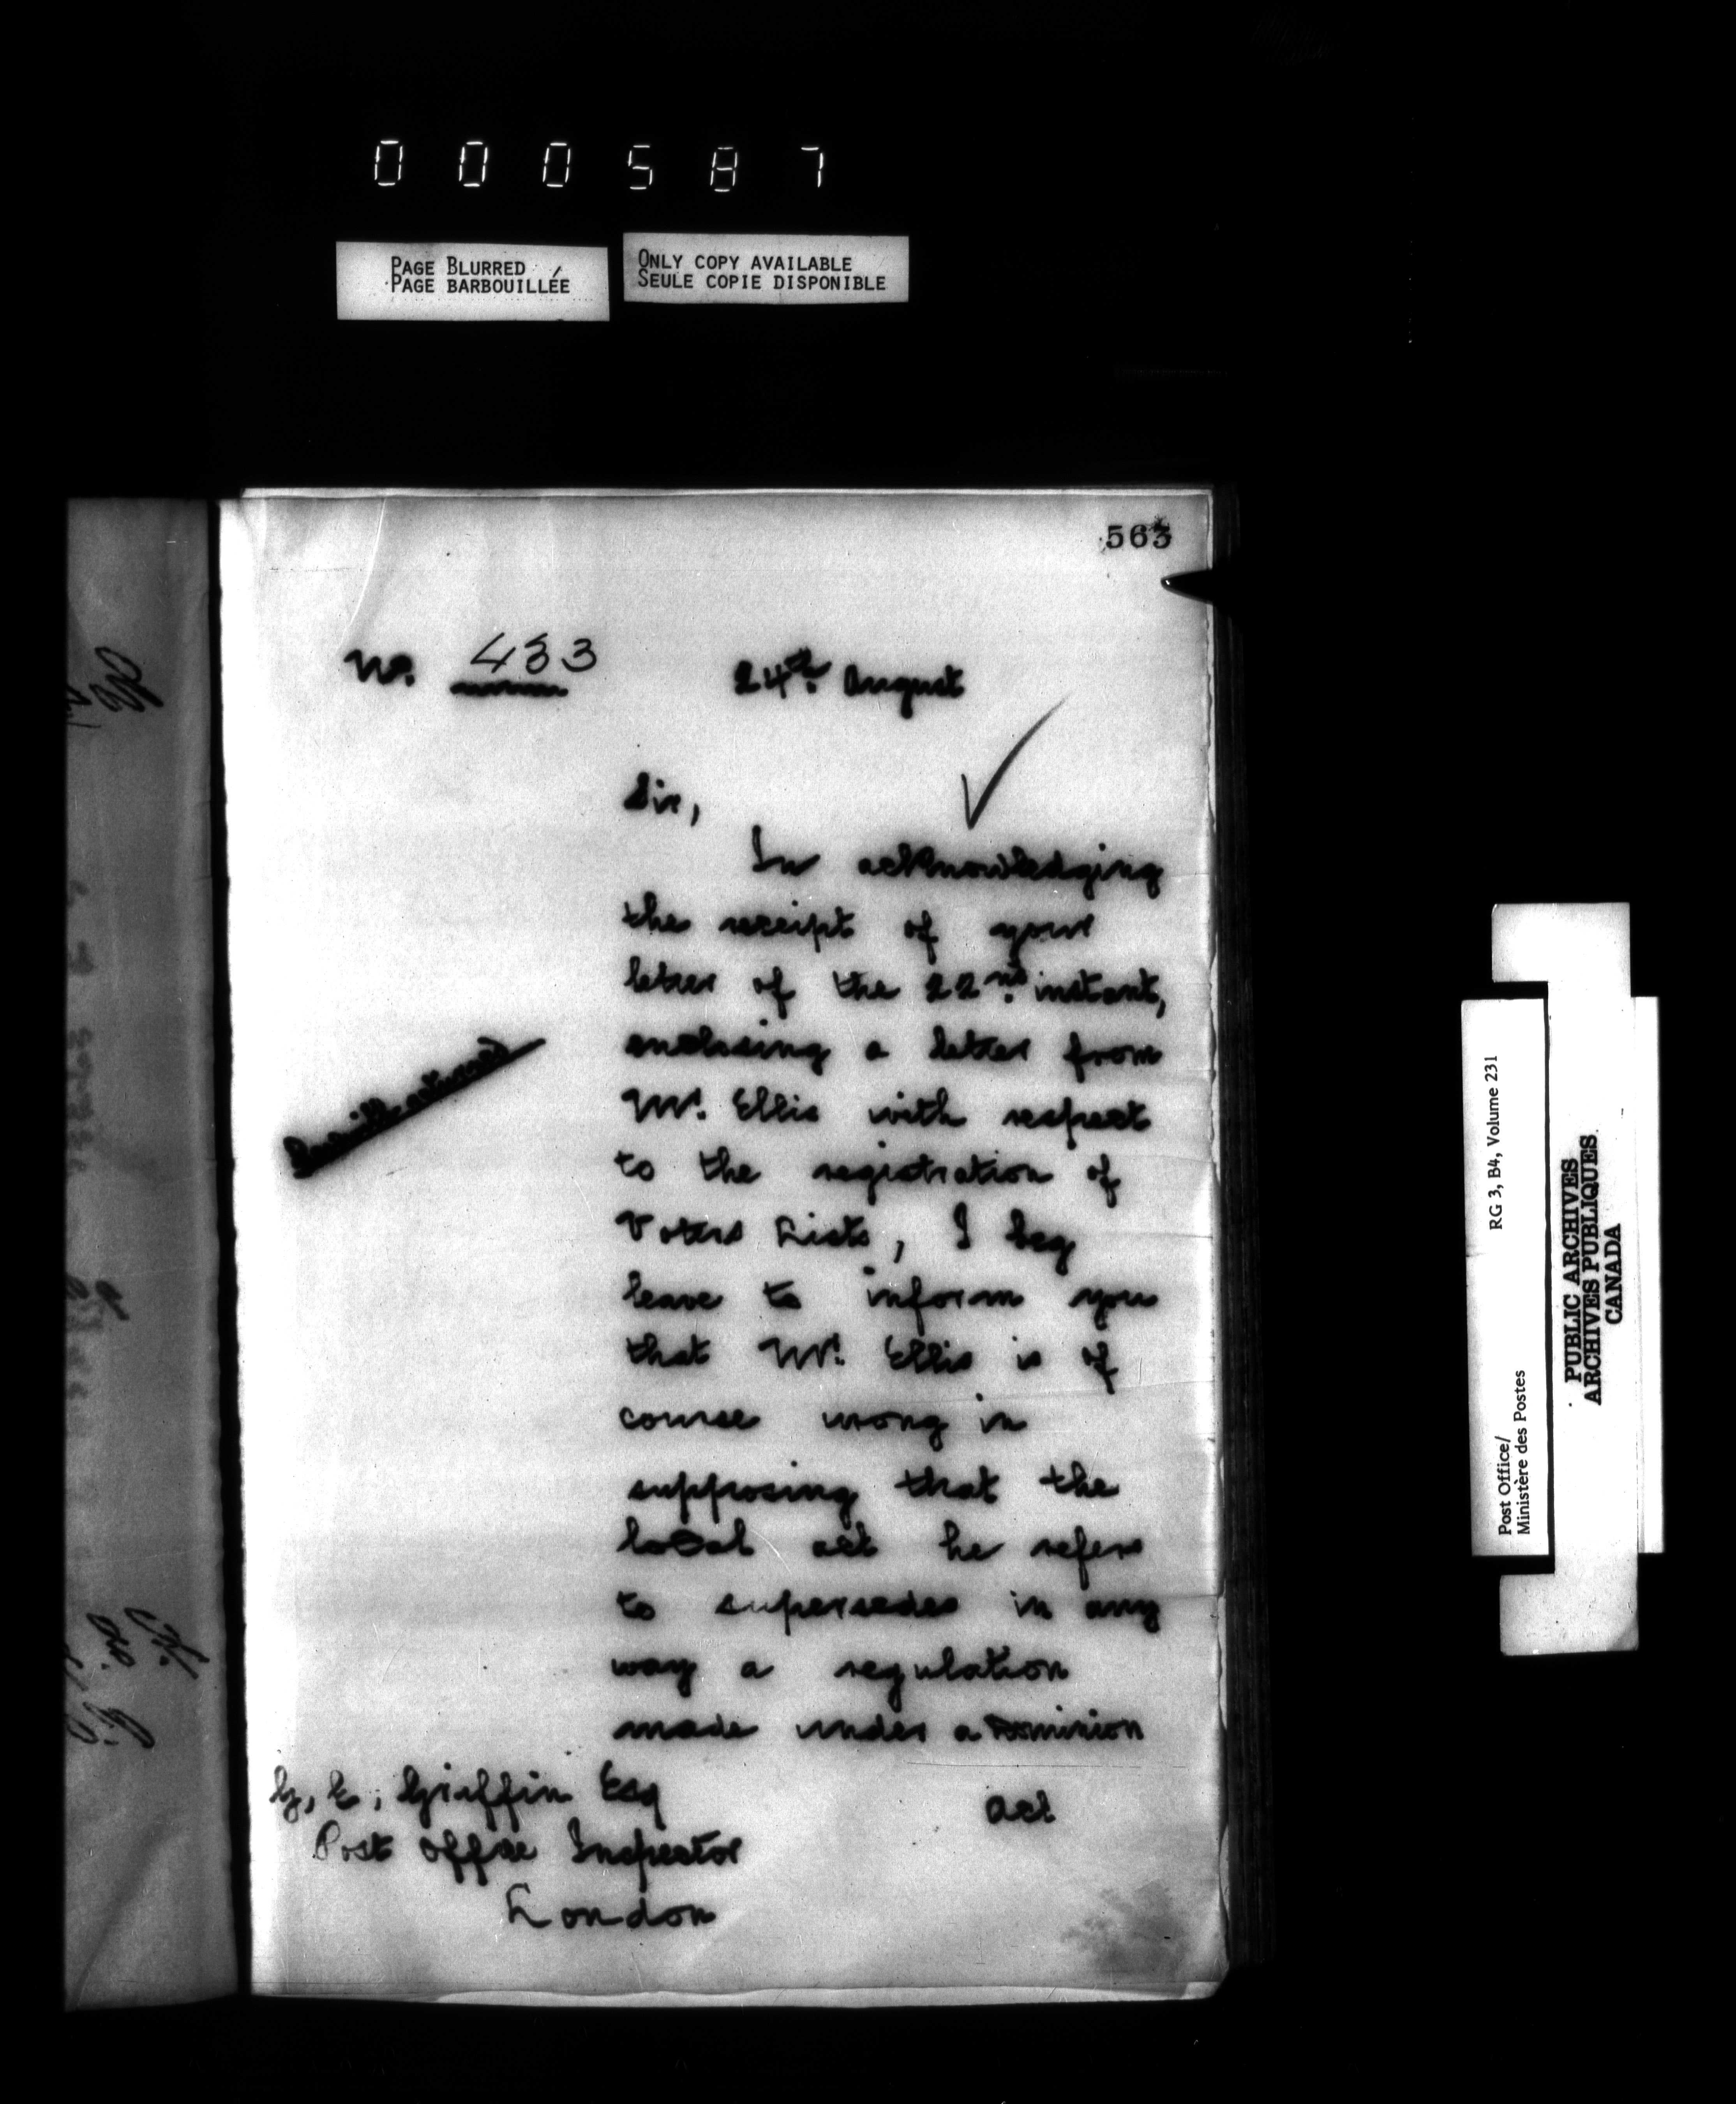 000587
PAGE BLURRED
PAGE BARBOUILLÉE
ONLY COPY AVAILABLE
SEULE COPIE DISPONIBLE
563
No. 433
24th. August
Sir,
In acknowledging
the receipt of your
letter of the 22nd. instant,
enclosing a letter from
Mr. Ellis with respect
to the registration of
Voters Lists, I beg
leave to inform you
that Mr. Ellis is of
course wrong in
supposing that the
local act he refers
to supersedes in any
way a regulation
made under a Dominion
act
G, E, Griffin Esq
Post Office Inspector
London
Post Office/
Ministère des Postes
RG 3, B4, Volume 231
PUBLIC ARCHIVES
ARCHIVES PUBLIQUES
CANADA